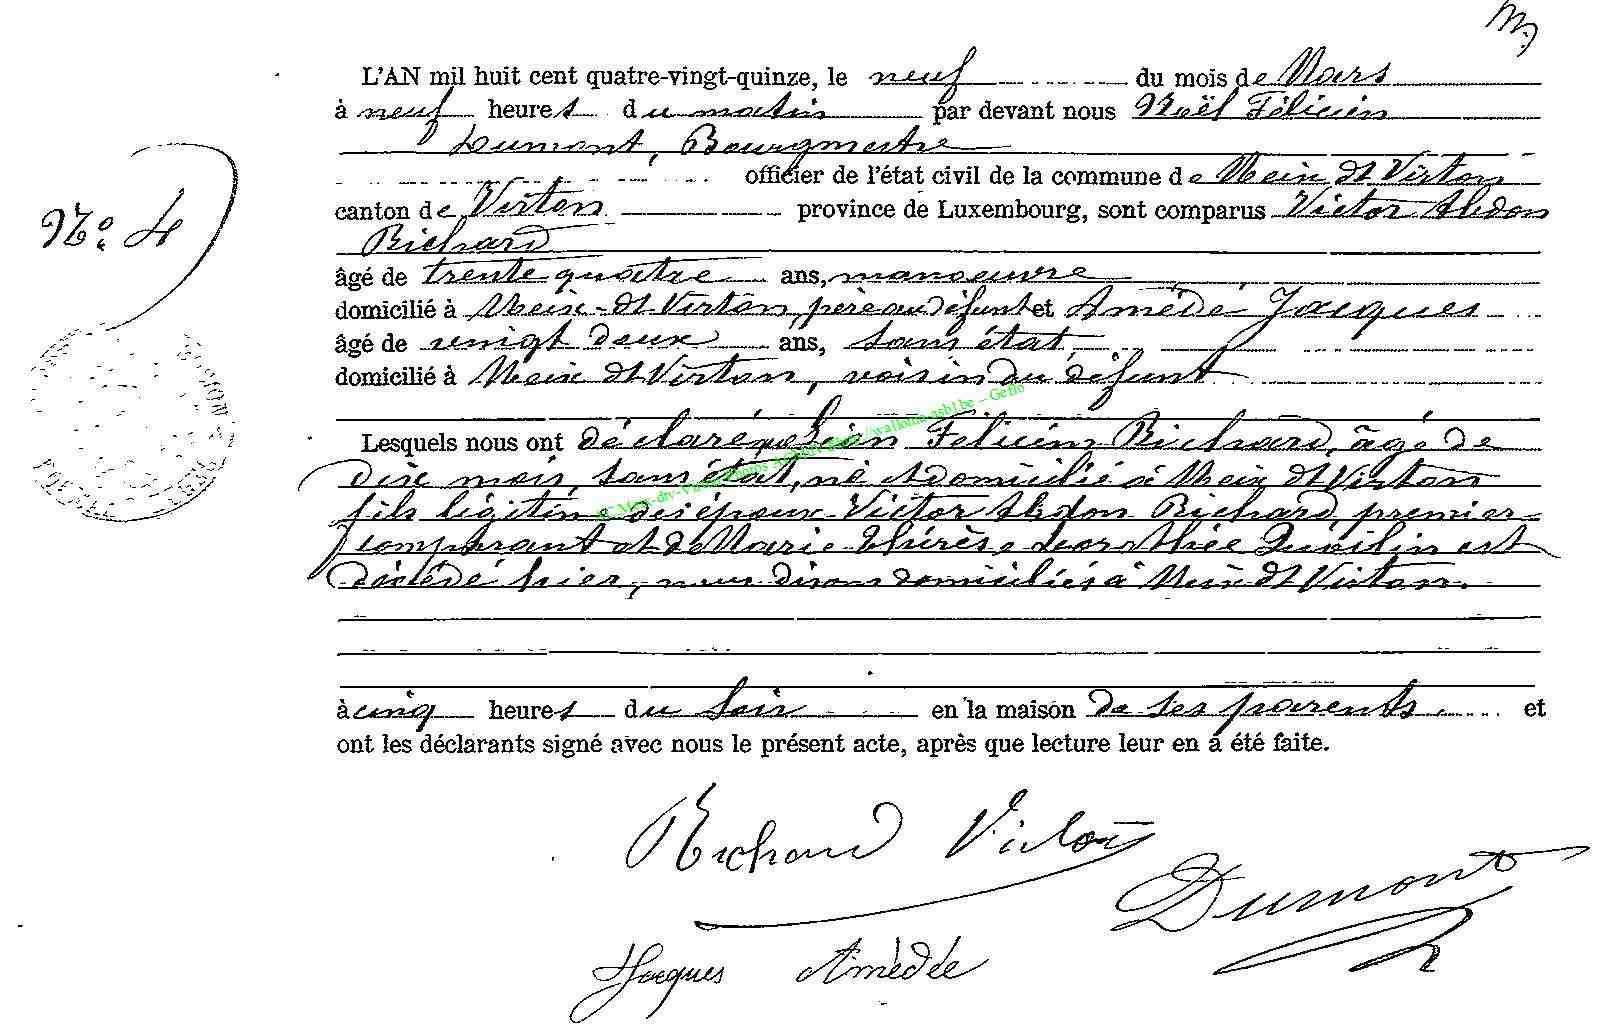 M.
L'AN mil huit cent quatre-vingt-quinze, le neuf du mois de Mars
à neuf heures du matin par devant nous Noël Félicien
Dumont, Bourgmestre
officier de l'état civil de la commune de Meix dt Virton
N° 4
canton de Virton province de Luxembourg, sont comparus Victor Abdon
Richard
âgé de trente quatre ans, manoeuvre
domicilié à Meix-dt Virton, père au défunt et Amédé Jacques
âgé de vingt deux ans, sans état
domicilié à Meix dt Virton, voisin du défunt
Lesquels nous ont déclaré, que Félicien Richard, âgé de
dix mois, sans état, né et domicilié à Meix dt Virton
fils légitime des époux Victor Abdon Richard, premier
comparant et de Marie Thérèse Dorothée est
décédé hier, nous disons domiciliés à Meix dt Virton.
à cinq heures du soir en la maison de ses parents. et
ont les déclarants signé avec nous le présent acte, après que lecture leur en a été faite.
Richard Victor
Dumont
Jacques Amédée